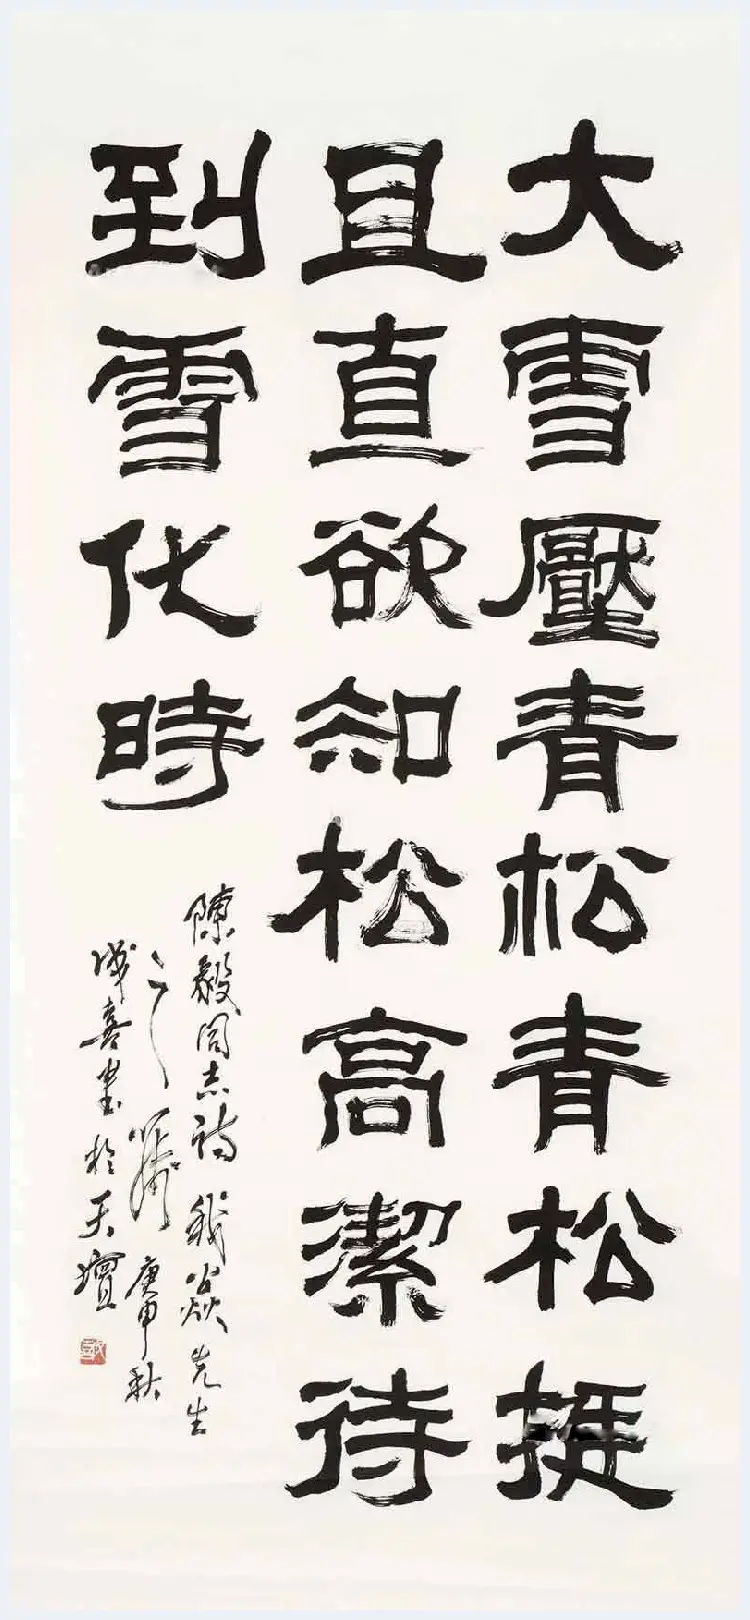 大雪壓青松青松挺
且直欲知松高潔待
到雪化時
陳毅同志詩 焱先生
之 庚申秋
喜書於天